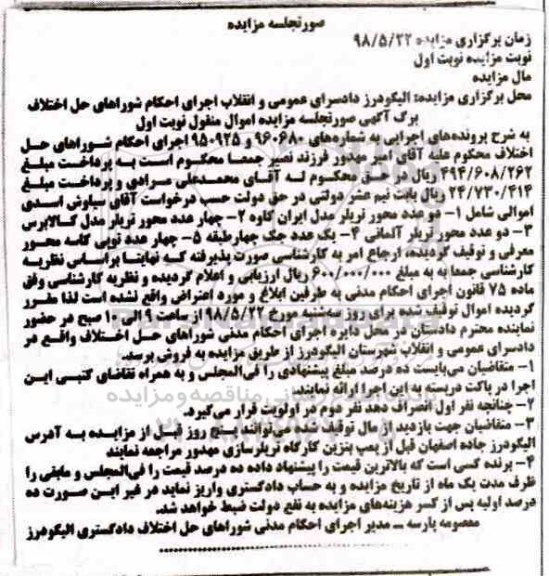 صورتجلسه مزایده
زمان برگزاری مزایده ۹۸/۵/۲۲
نوبت مزایده نوبت اول
مال مزایده
محل برگزاری مزایده: الیگودرز دادسرای عمومی و انقلاب اجرای احکام شوراهای حل اختلاف
برگ آگهی صورتجلسه مزایده اموال منقول نوبت اول
به شرح پرونده‌های اجرایی به شماره‌های ۹۶۰۶۸۰ و ۹۵۰۹۲۵ اجرای احکام شوراهای حل
اختلاف محکوم علیه آقای امیر مهدور فرزند نصیر جمعا محکوم است به پرداخت مبلغ
۴۹۴/۶۰۸/۲۶۲ ریال در حق محکوم له آقای محمدعلی مرادی و پرداخت مبلغ
۲۴/۷۳۰/۴۱۴ ریال بابت نیم عشر دولتی در حق دولت حسب درخواست آقای سیاوش اسدی
اموالی شامل ۱- دو عدد محور تریلر مدل ایران کاوه ۲- چهار عدد محور تریلر مدل کالابرس
۳- دو عدد محور تریلر آلمانی ۴- یک عدد جک چهارطبقه ۵- چهار عدد توپی کاسه محور
معرفی و توقیف گردیده، ارجاع امر به کارشناسی صورت پذیرفته که نهایتا براساس نظریه
کارشناسی جمعا به به مبلغ ۶۰۰/۰۰۰/۰۰۰ ریال ارزیابی و اعلام گردیده و نظریه کارشناسی وفق
ماده ۷۵ قانون اجرای احکام مدنی به طرفین ابلاغ و مورد اعتراض واقع نشده است لذا مقرر
گردیده اموال توقیف شده برای روز سه‌شنبه مورخ ۹۸/۵/۲۲ از ساعت ۹ الی ۱۰ صبح در حضور
نماینده محترم دادستان در محل دایره اجرای احکام مدنی شوراهای حل اختلاف واقع در
دادسرای عمومی و انقلاب شهرستان الیگودرز از طریق مزایده به فروش برسد.
۱- متقاضیان می‌بایست ده درصد مبلغ پیشنهادی را فی‌المجلس و به همراه تقاضای کتبی این
اجرا در پاکت دربسته به این اجرا ارائه نمایند.
۲- چنانچه نفر اول انصراف دهد نفر دوم در اولویت قرار می‌گیرد.
۳- متقاضیان جهت بازدید از مال توقیف شده می‌توانند پنج روز قبل از مزایده به آدرس
الیگودرز جاده اصفهان قبل از پمپ بنزین کارگاه تریلرسازی مهدور مراجعه نمایند
۴- برنده کسی است که بالاترین قیمت را پیشنهاد داده ده درصد قیمت را فی‌المجلس و مابقی را
ظرف مدت یک ماه از تاریخ مزایده و به حساب دادگستری واریز نماید در غیر این صورت ده
درصد اولیه پس از کسر هزینه‌های مزایده به نفع دولت ضبط خواهد شد.
معصومه پارسه ـ مدیر اجرای احکام مدنی شوراهای حل اختلاف دادگستری الیگودرز